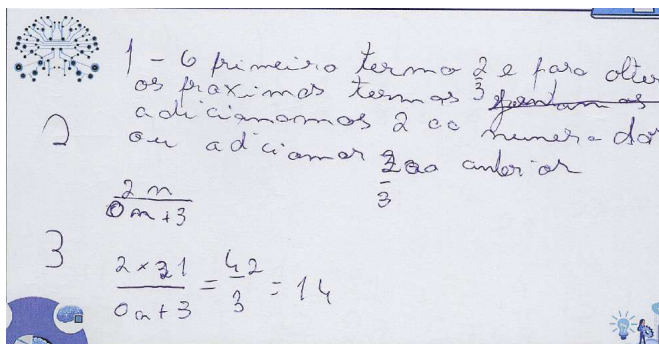 1 - O primeiro termo 2/3 e para obter
os proximos termos
adicionamos 2 ao numerador
ou adicionar 2/3 ao anterior
2
2n/0n+3
3
2×21/0n+3 = 42/3 = 14